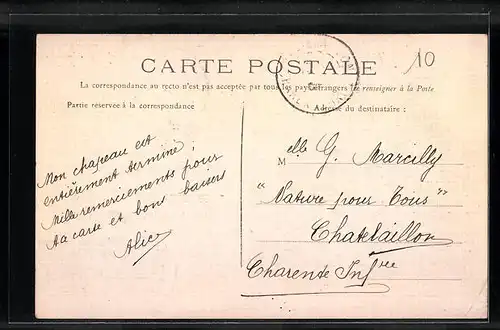 10
CARTE POSTALE
La correspondance au recto n'est pas acceptée par tous les pays étrangers (se renseigner à la Poste
Partie réservée à la correspondance
Adresse du destinataire :
Mon chapeau est
entièrement terminé ;
Mille remerciements pour
ta carte et bons baisers
Alice
Melle G. Marcilly
"Nature pour Tous"
Chatelaillon
Charente Infre